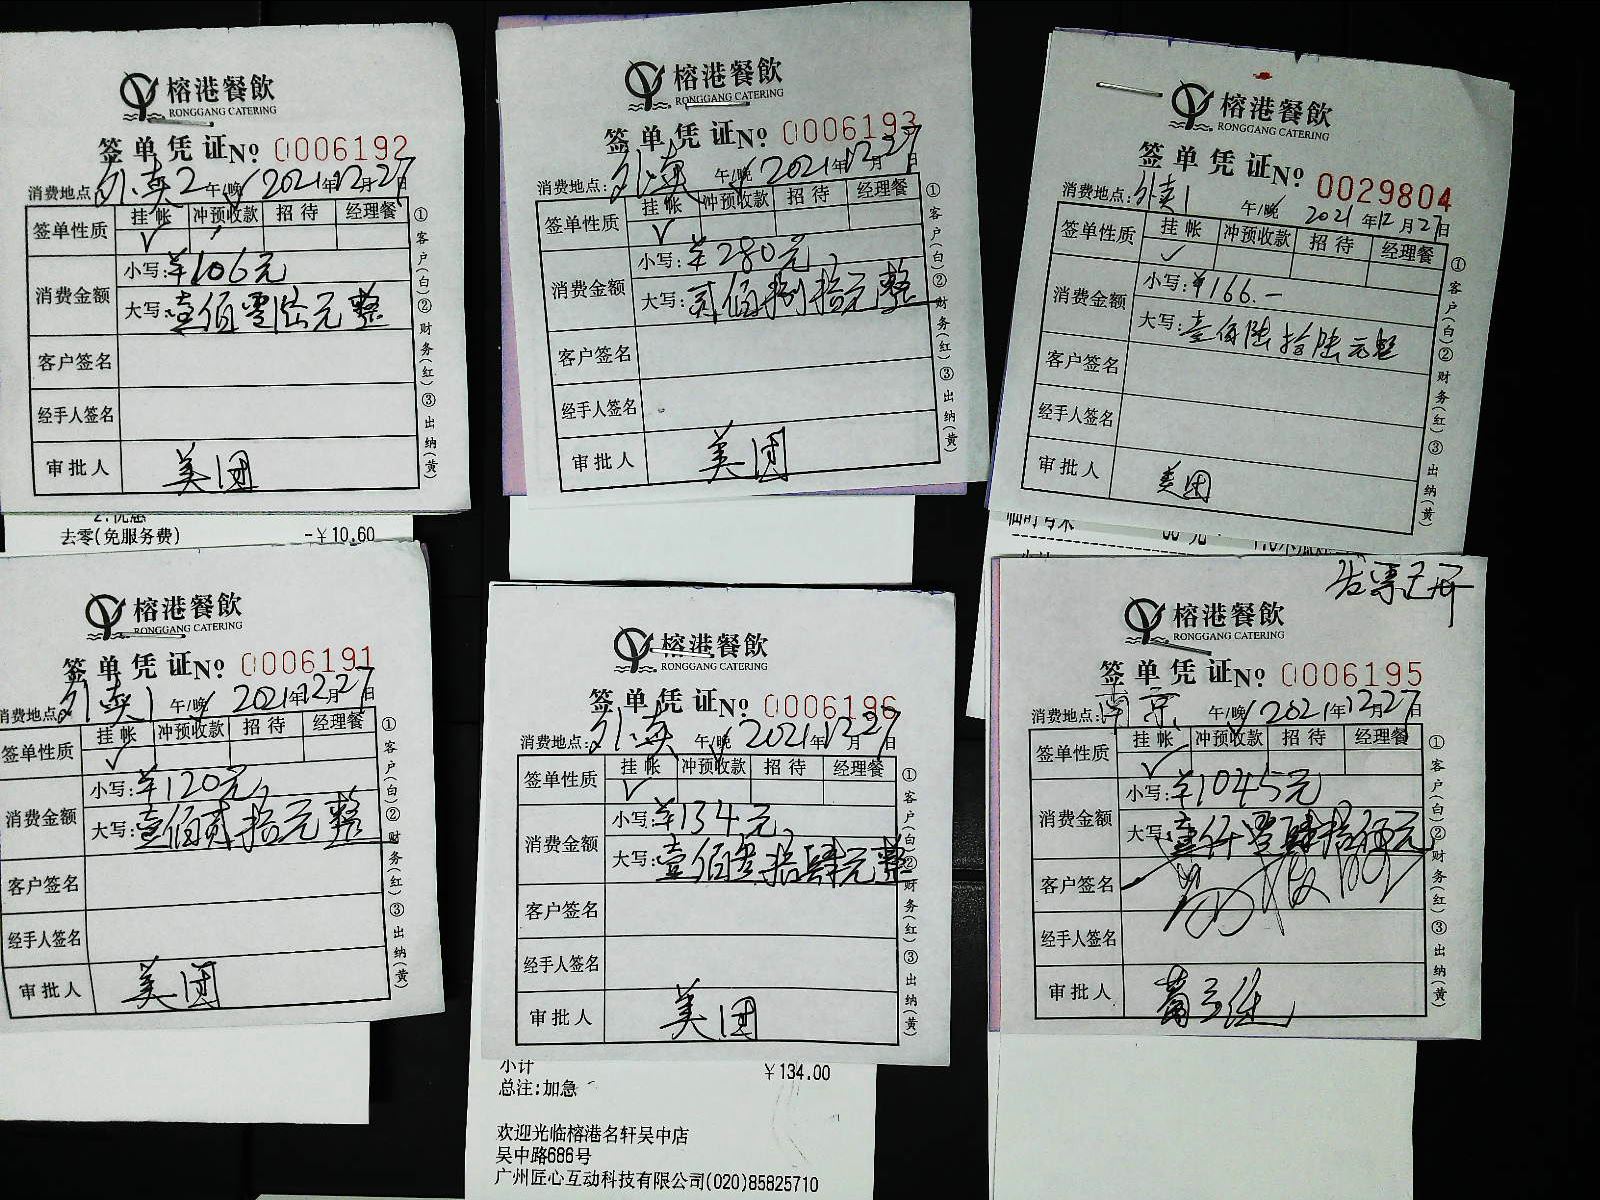 榕港餐飲
RONGGANG CATERING
签单凭证№ 0006192
消费地点:外卖2 午/晚 2021年12月27日
签单性质 挂帐 冲预收款 招待 经理餐
✓
消费金额 小写:¥106元
大写:壹佰零陆元整
客户签名
经手人签名
审批人 美团
①客户(白)②财务(红)③出纳(黄)
去零(免服务费) -¥10.60
榕港餐飲
RONGGANG CATERING
签单凭证№ 0006193
消费地点:外卖 午/晚 2021年12月27日
签单性质 挂帐 冲预收款 招待 经理餐
✓
消费金额 小写:¥280元
大写:贰佰捌拾元整
客户签名
经手人签名
审批人 美团
①客户(白)②财务(红)③出纳(黄)
榕港餐飲
RONGGANG CATERING
签单凭证№ 0029804
消费地点:外卖1 午/晚 2021年12月27日
签单性质 挂帐 冲预收款 招待 经理餐
✓
消费金额 小写:¥166.-
大写:壹佰陆拾陆元整
客户签名
经手人签名
审批人 美团
①客户(白)②财务(红)③出纳(黄)
榕港餐飲
RONGGANG CATERING
签单凭证№ 0006191
消费地点:外卖1 午/晚 2021年12月27日
签单性质 挂帐 冲预收款 招待 经理餐
✓
消费金额 小写:¥120元
大写:壹佰贰拾元整
客户签名
经手人签名
审批人 美团
①客户(白)②财务(红)③出纳(黄)
榕港餐飲
RONGGANG CATERING
签单凭证№ 0006196
消费地点:外卖 午/晚 2021年12月27日
签单性质 挂帐 冲预收款 招待 经理餐
✓
消费金额 小写:¥134元
大写:壹佰叁拾肆元整
客户签名
经手人签名
审批人 美团
①客户(白)②财务(红)③出纳(黄)
小计 ¥134.00
总注:加急
欢迎光临榕港名轩吴中店
吴中路686号
广州匠心互动科技有限公司(020)85825710
发票已开
榕港餐飲
RONGGANG CATERING
签单凭证№ 0006195
消费地点:南京 午/晚 2021年12月27日
签单性质 挂帐 冲预收款 招待 经理餐
✓
消费金额 小写:¥1045元
大写:壹仟零肆拾伍元
客户签名
经手人签名
审批人
①客户(白)②财务(红)③出纳(黄)